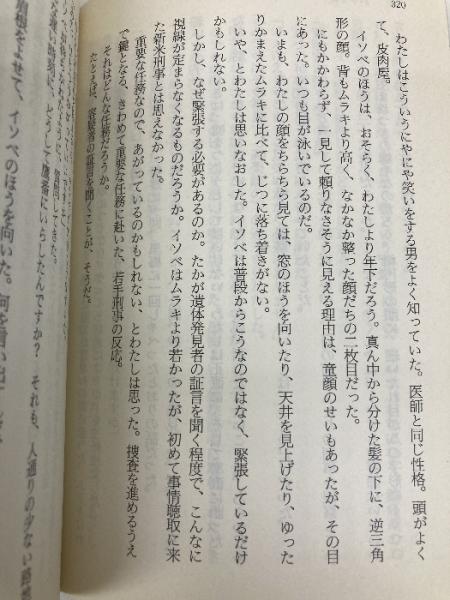 320
わたしはこういうにやにや笑いをする男をよく知っていた。医師と同じ性格。頭がよく
て、皮肉屋。
イソベのほうは、おそらく、わたしより年下だろう。真ん中から分けた髪の下に、逆三角
形の顔。背もムラキより高く、なかなか整った顔だちの二枚目だった。
にもかかわらず、一見して頼りなさそうに見える理由は、童顔のせいもあったが、その目
にあった。いつも目が泳いでいるのだ。
いまも、わたしの顔をちらちら見ては、窓のほうを向いたり、天井を見上げたり、ゆった
りかまえたムラキに比べて、じつに落ち着きがない。
いや、とわたしは思いなおした。イソベは普段からこうなのではなく、緊張しているだけ
かもしれない。
しかし、なぜ緊張する必要があるのか。たかが遺体発見者の証言を聞く程度で、こんなに
視線が定まらなくなるものだろうか。イソベはムラキより若かったが、初めて事情聴取に来
た新米刑事とは思えなかった。
重要な任務なので、あがっているのかもしれない、とわたしは思った。捜査を進めるうえ
で鍵となる、きわめて重要な任務に赴いた、若手刑事の反応。
それはどんな任務だろうか。
たとえば、容疑者の証言を聞くことが、そうだ。
どうして鷹番にいらしたんですか？ それも、人通りの少ない
よせて、イソベのほうを向いた。